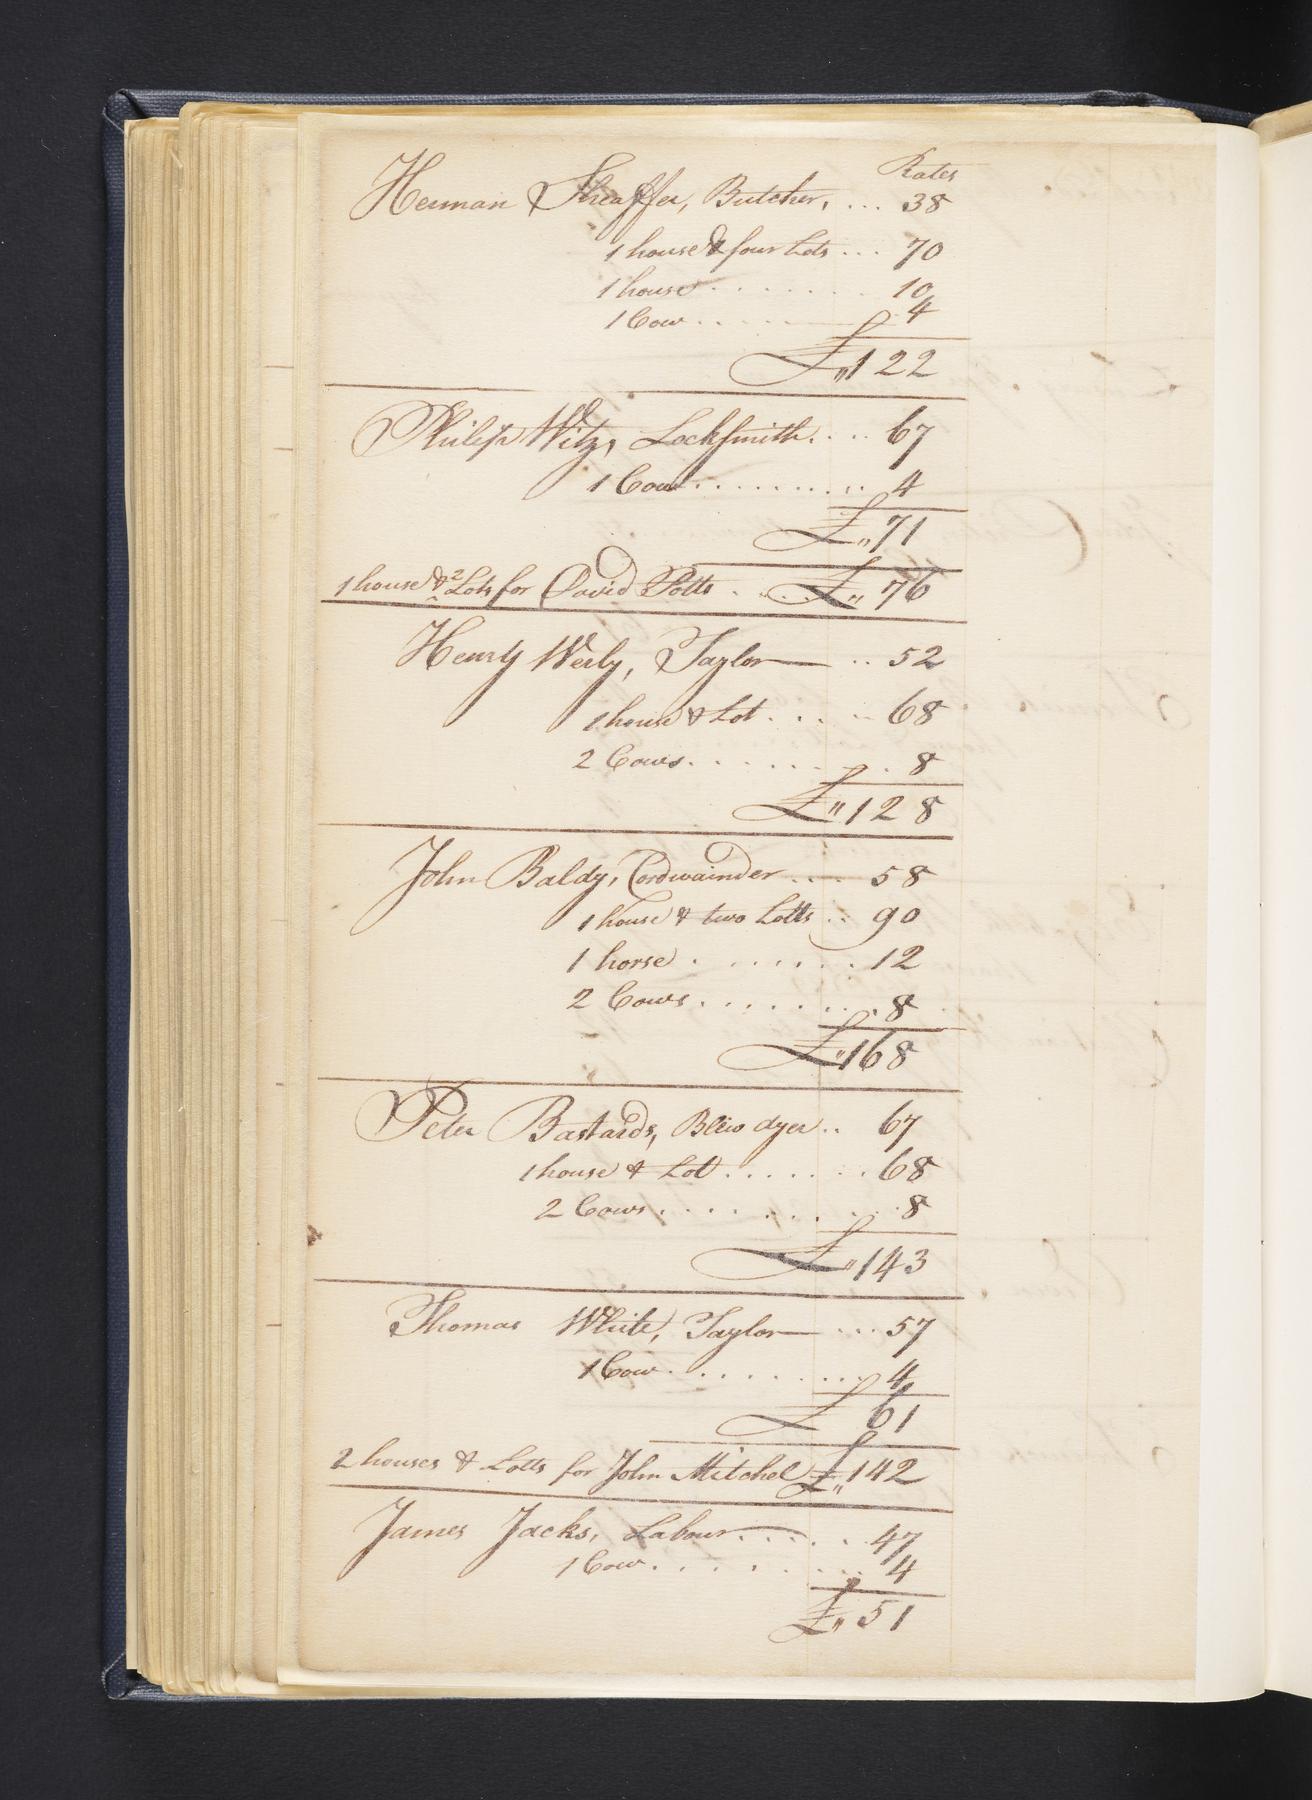 Rates
Herman Sheaffer, Butcher, ... 38
1 house & four Lots ... 70
1 house ....... 10
1 Cow ..... 4
£,, 122
Philip Witz, Locksmith .... 67
1 Cow .......... 4
£,, 71
1 house & 2 Lots for David Potts .... £,, 76
Henry Werly, Taylor — .. 52
1 house & Lot ..... 68
2 Cows ........ 8
£,, 128
John Baldy, Cordwainder .... 58
1 house & two Lotts .. 90
1 horse ....... 12
2 Cows ........ 8
£,, 168
Peter Bastards, Blew dyer .. 67
1 house & Lot ....... 68
2 Cows ........ 8
£,, 143
Thomas White, Taylor — ... 57
1 Cow ........ 4
£ 61
2 houses & Lotts for John Mitchel £,, 142
James Jacks, Labour ..... 47
1 Cow ........ 4
£,, 51